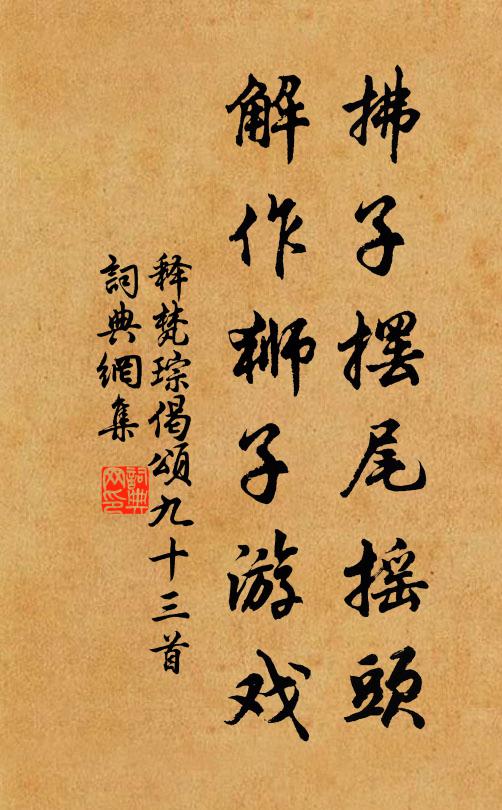 拂子摆尾摇頭
解作狮子游戏
释梵琮偈頌九十三首
詞典網集
詞典
网印